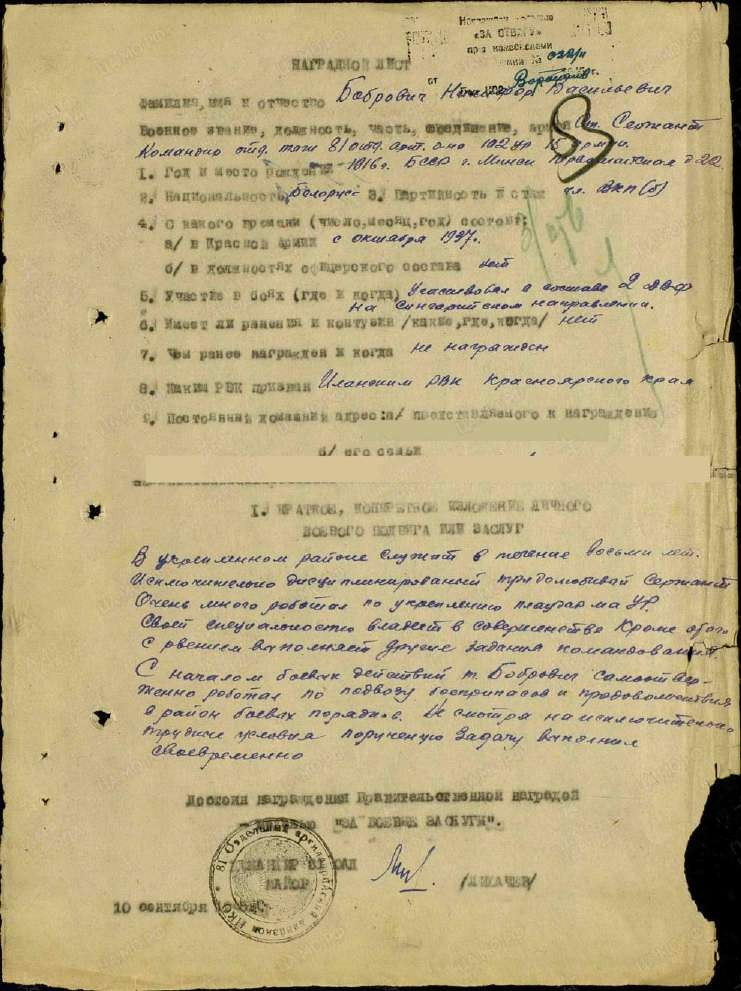 «ЗА ОТВАГУ»
НАГРАДНОЙ ЛИСТ
от
Фамилия, имя и отчество Бобрович Васильевич
Военное звание, должность, часть, соединение, армия Ст. Сержант
81 отд. арт. 15 Армии
1. Год и место рождения 1916г. БССР г. Минск д 22
2. Национальность Белорус 3. Партийность и стаж чл. ВКП(б)
4. С какого времени (число, месяц, год) состоит:
а/ в Красной Армии с октября 1937г.
б/ в должностях офицерского состава нет
5. Участие в боях (где и когда) Участвовал в составе 2 ДВФ
на направлении.
6. Имеет ли ранения и контузии /какие, где, когда/ нет
7. Чем ранее награжден и когда не награжден
8. Каким РВК призван Иланским РВК Красноярского края
9. Постоянный домашний адрес: а/ представляемого к награждению
б/ его семьи
I. КРАТКОЕ, КОНКРЕТНОЕ ИЗЛОЖЕНИЕ ЛИЧНОГО
БОЕВОГО ПОДВИГА ИЛИ ЗАСЛУГ
В укрепленном районе служит в течение восьми лет.
Исключительно дисциплинированый трудолюбивый Сержант
Очень много работал по укреплению плацдарма УР.
Своей специальностью владеет в совершенстве Кроме этого
с рвением выполняет другие задания командования.
С началом боевых действий т. Бобрович самоотвер-
женно работал по подвозу боеприпасов и продовольствия
в район боевых порядков. Не смотря на исключительно
трудные условия порученую задачу выполнил
своевременно
Достоин награждения Правительственной наградой
"ЗА БОЕВЫЕ ЗАСЛУГИ".
КОМАНДИР 81 ОАД
МАЙОР /ЛИХАЧЕВ/
10 сентября